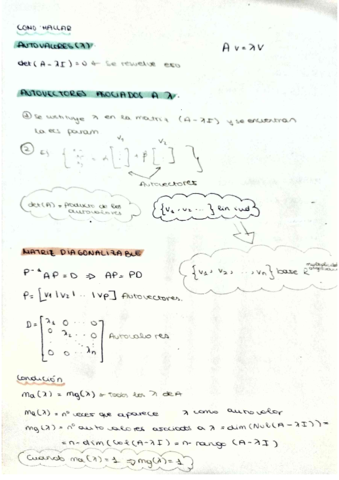 COMO HALLAR
AUTOVALORES (λ)
Av = λv
det(A-λI)=0 ← Se resuelve eso
AUTOVECTORES ASOCIADOS A λ.
① Se sustituye λ en la matriz (A-λI) y se encuentran
las ec. param
②
Autovectores
det(A) = producto de los
autovalores
{v₁, v₂ ...} lin ind
{v₁, v₂, ..., vn} base R
MATRIZ DIAGONALIZABLE
P⁻¹AP=D ⇒ AP=PD
P=[v₁|v₂|...|vp] Autovectores.
D=[λ₁ 0 ... 0
0 λ₂ ... 0
0 0 ... λn] Autovalores.
Condición
ma(λ) = mg(λ) = todos los λ de A
ma(λ) = nº veces que aparece λ como autovalor
mg(λ) = nº autovalores asociados a λ = dim(Nul(A-λI)) =
= n-dim(Col(A-λI)) = n-rango(A-λI)
Cuando ma(λ)=1 ⇒ mg(λ)=1